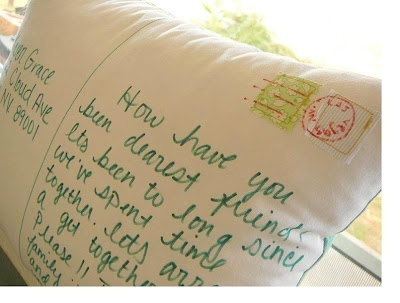 Grace
Cloud Ave
NV. 89001
LAS VEGAS, NV.
How have you
been dearest friend
Its been to long since
we've spent time
together. lots
a get together
Please!!
family
and